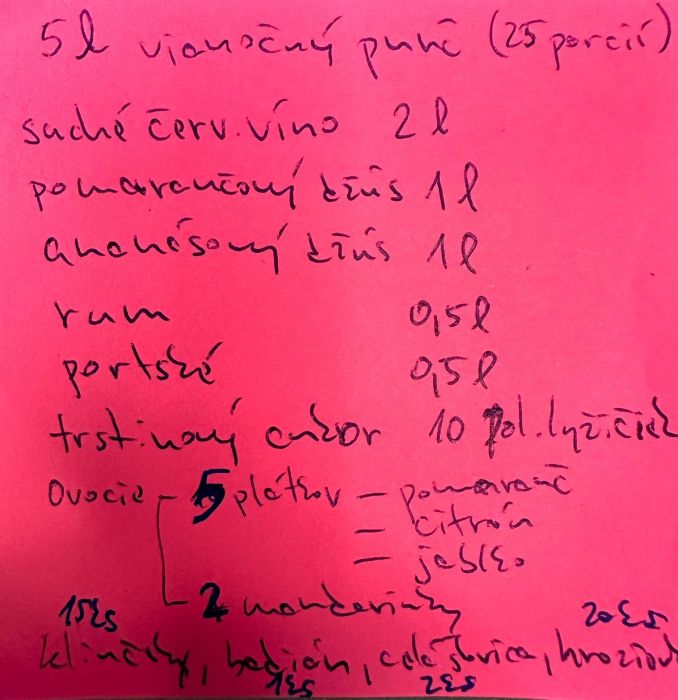 5 l vianočný punč (25 porcií)
suché červ. víno 2 l
pomarančový džús 1 l
ananásový džús 1 l
rum 0,5 l
portské 0,5 l
trstinový cukor 10 pol. lyžičiek
Ovocie - 5 plátkov - pomaranč
- citrón
- jablko
2 mandarinky
15ks 20ks
klinčeky, badián, celá škorica, hrozien
1ks 2ks